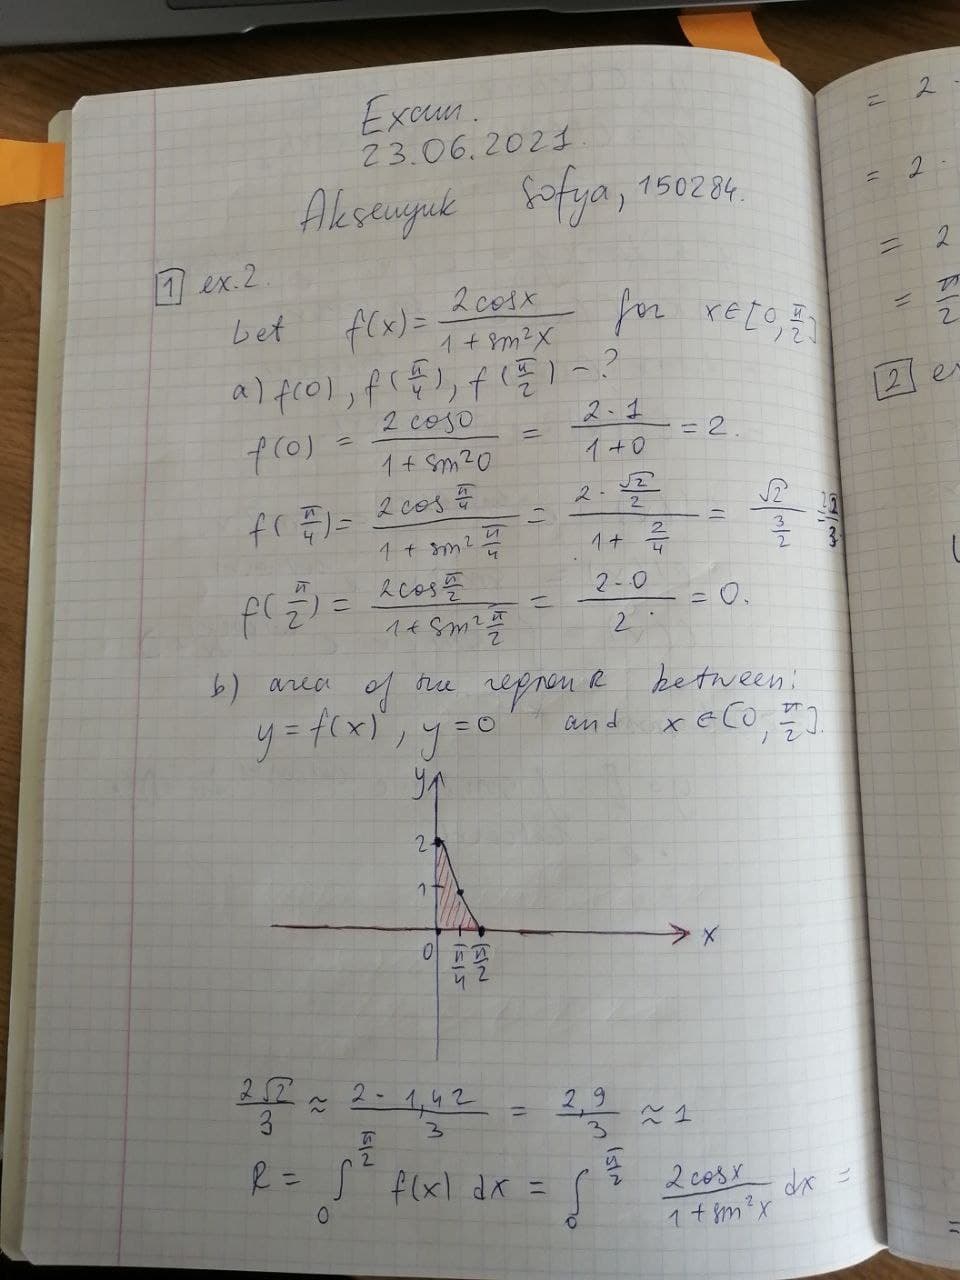 Exam.
23.06.2021.
Aksenyuk Sofya, 150284.
1 ex.2.
Let f(x) = 2cosx / (1 + sin²x) for x ∈ [0, π/2]
a) f(0), f(π/4), f(π/2) - ?
f(0) = 2cos0 / (1 + sin²0) = 2·1 / (1+0) = 2.
f(π/4) = 2cos π/4 / (1 + sin² π/4) = (2 · √2/2) / (1 + 2/4) = √2 / (3/2) = 2√2/3.
f(π/2) = 2cos π/2 / (1 + sin² π/2) = 2·0 / 2 = 0.
b) area of the region R between:
y = f(x), y = 0 and x ∈ [0, π/2].
y
2
1
0 π/4 π/2 x
2√2/3 ≈ 2·1,42 / 3 = 2,9/3 ≈ 1
R = ∫₀^(π/2) f(x) dx = ∫₀^(π/2) 2cosx / (1 + sin²x) dx =
= 2
= 2 ·
= 2
= π/2
2 ex
=